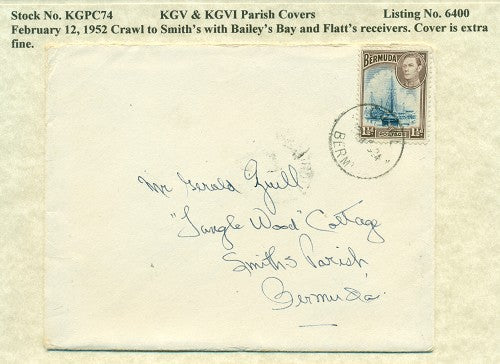 Stock No. KGPC74 KGV & KGVI Parish Covers Listing No. 6400
February 12, 1952 Crawl to Smith's with Bailey's Bay and Flatt's receivers. Cover is extra
fine.
BERMUDA
1½d
POSTAGE
BERM
Mr Gerald Zuill
"Tangle Wood" Cottage
Smiths Parish
Bermuda